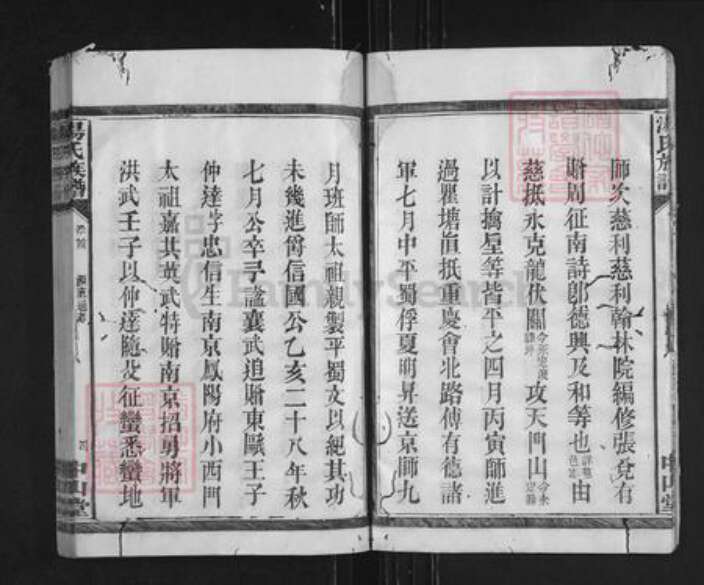 師次慈利慈利翰林院編修張兌有
贈周征南詩郎德興及和等也由
慈抵永克龍伏關攻天門山今永定縣
以計擒壁等皆平之四月丙寅師進
過瞿塘直抵重慶會北路傅有德諸
軍七月中平蜀俘夏明昇送京師九
月班師太祖親製平蜀文以紀其功
未幾進爵信國公乙亥二十八年秋
七月公卒予諡襄武追贈東甌王子
仲達字忠信生南京鳳陽府小西門
太祖嘉其英武特贈南京招勇將軍
洪武壬子以仲達隨父征蠻悉蠻地
湯氏族譜
中山堂
湯氏族譜
中山堂
FamilySearch